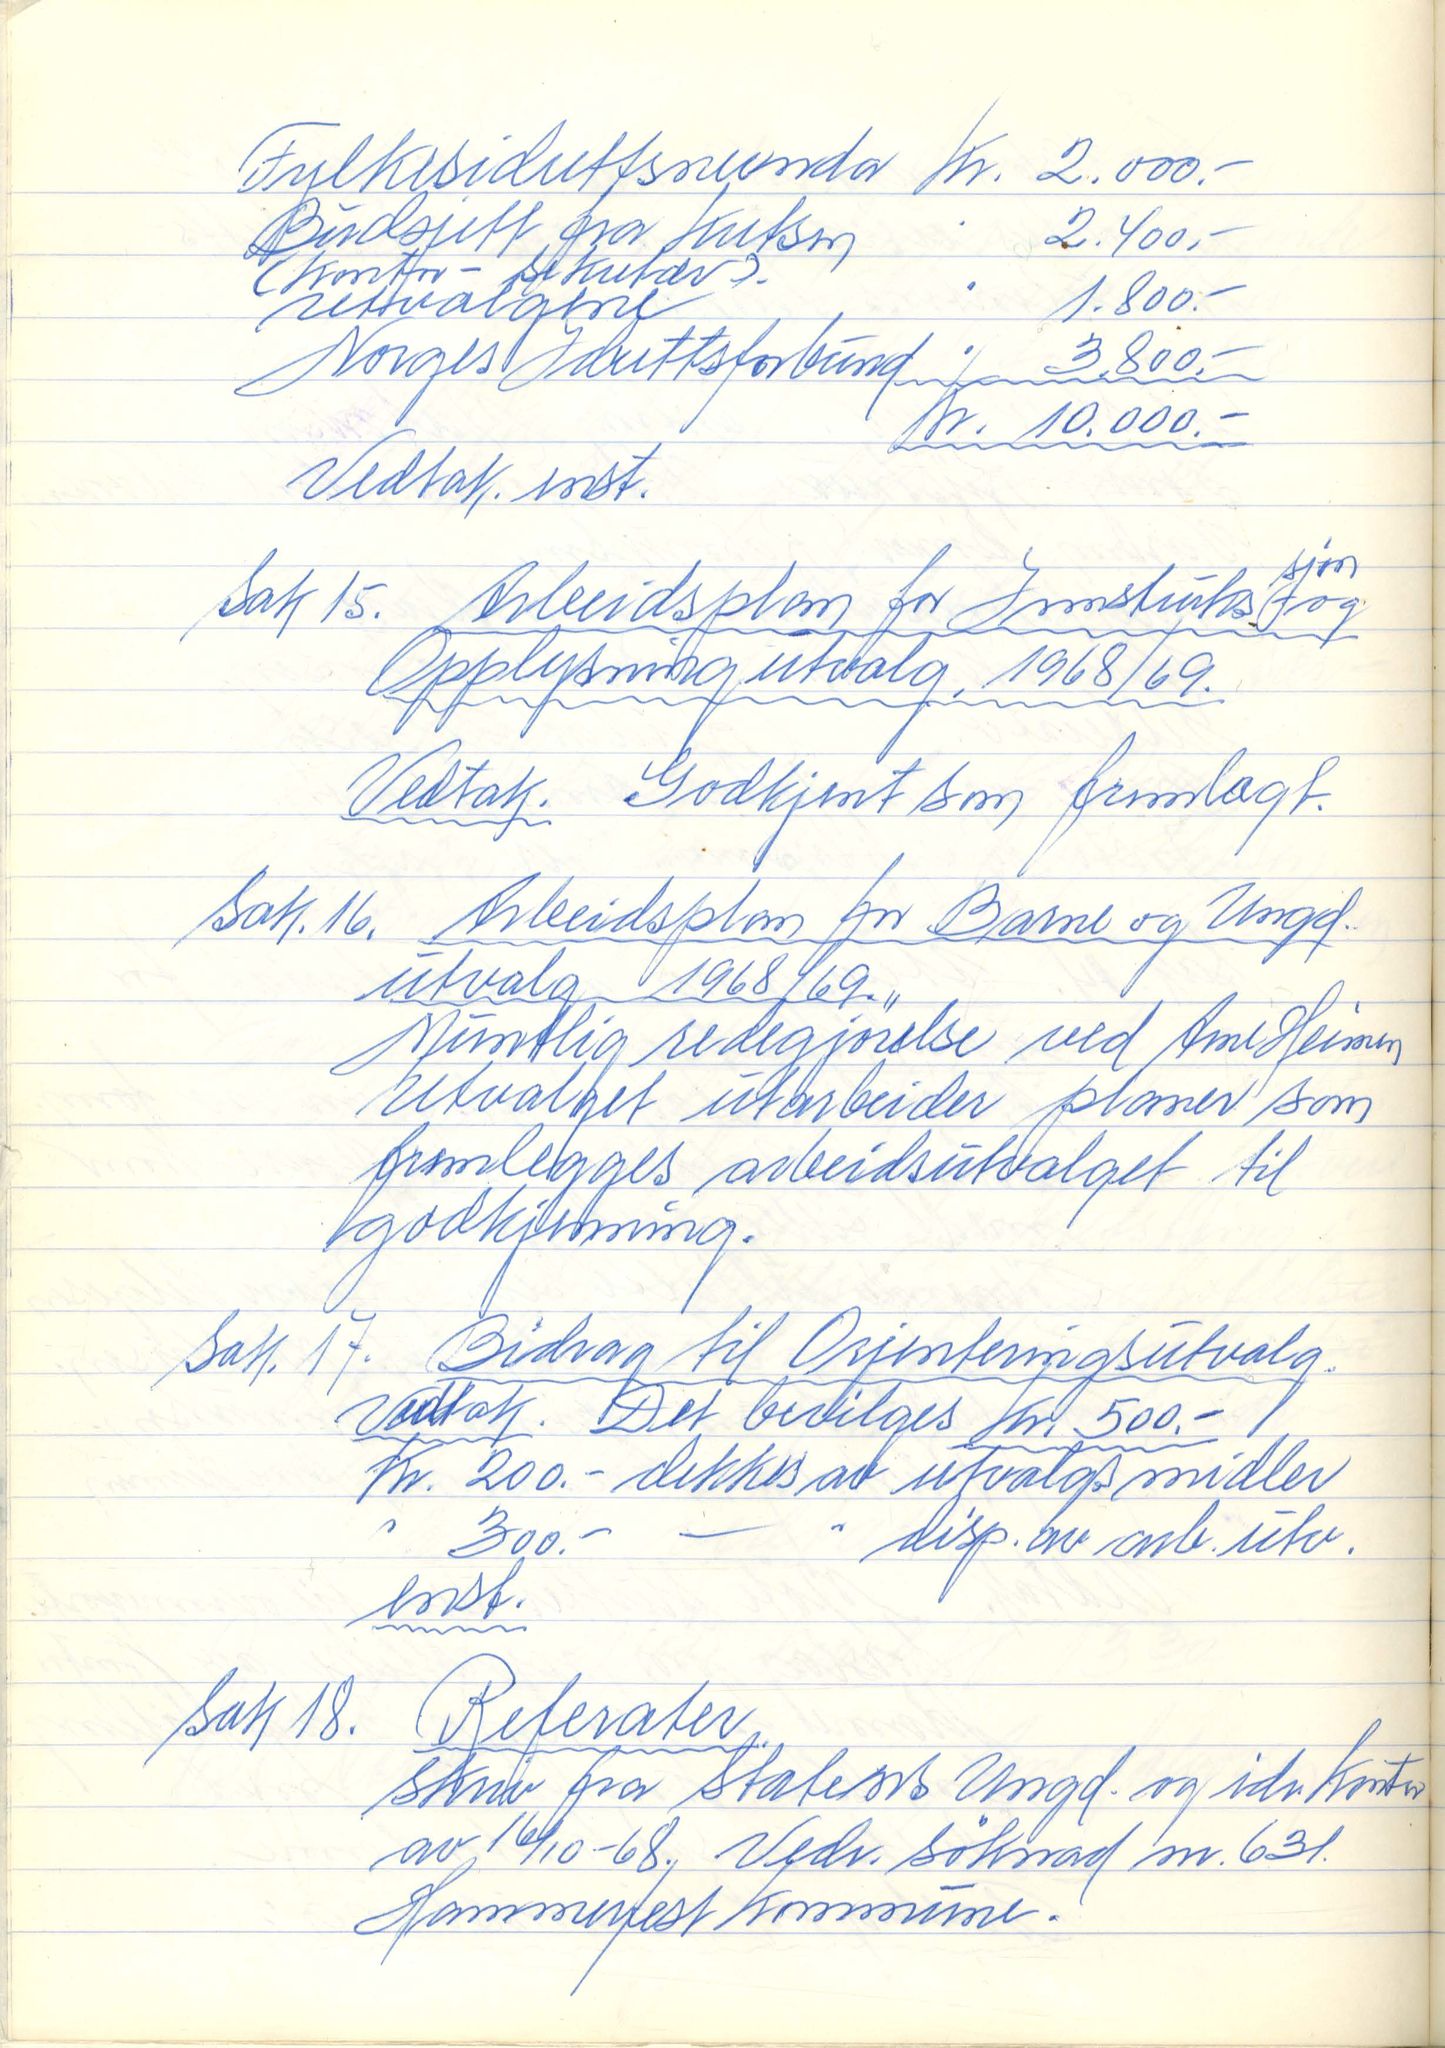 Fylkesidrettsnemnda Kr. 2.000.-
Budsjett fra kretsen " 2.400.-
(Kontor- sekretær).
utvalgene " 1.800.-
Norges Idrettsforbund " 3.800.-
Kr. 10.000.-
Vedtak. enst.
Sak 15. Arbeidsplan for Innstruksjon og
Opplysningutvalg. 1968/69.
Vedtak. Godkjent som fremlagt.
Sak. 16. Arbeidsplan for Barne og Ungd.
utvalg 1968/69."
Muntlig redegjørelse ved Arne Heimen
utvalget utarbeider planer som
fremlegges arbeidsutvalget til
godkjenning.
Sak. 17. Bidrag til Orjenteringsutvalg.
Vedtak. Det bevilges Kr. 500.-
Kr. 200.- dekkes av utvalgsmidler
" 300.- — " disp. av arb. utv.
enst.
Sak 18. Referater.
Skriv fra Statens Ungd. og idr. kontor
av 16/10-68. Vedr. söknad nr. 631.
Hammerfest kommune.